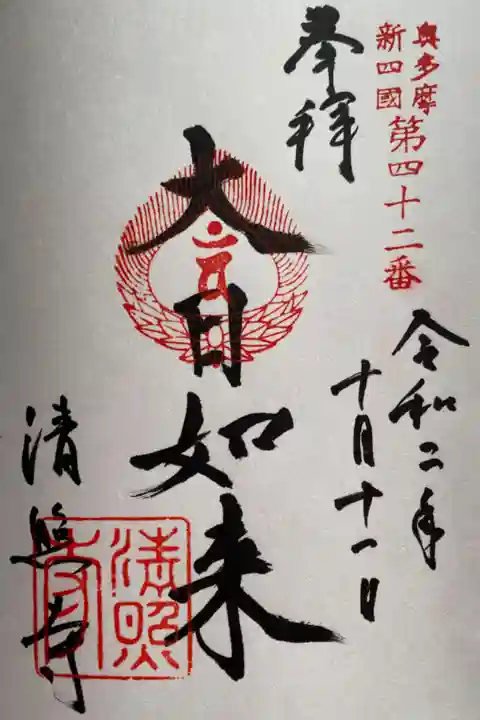 奥多摩
新四國
第四十二番
奉拝
令和二年
十月十一日
大日如来
清照寺
清照寺